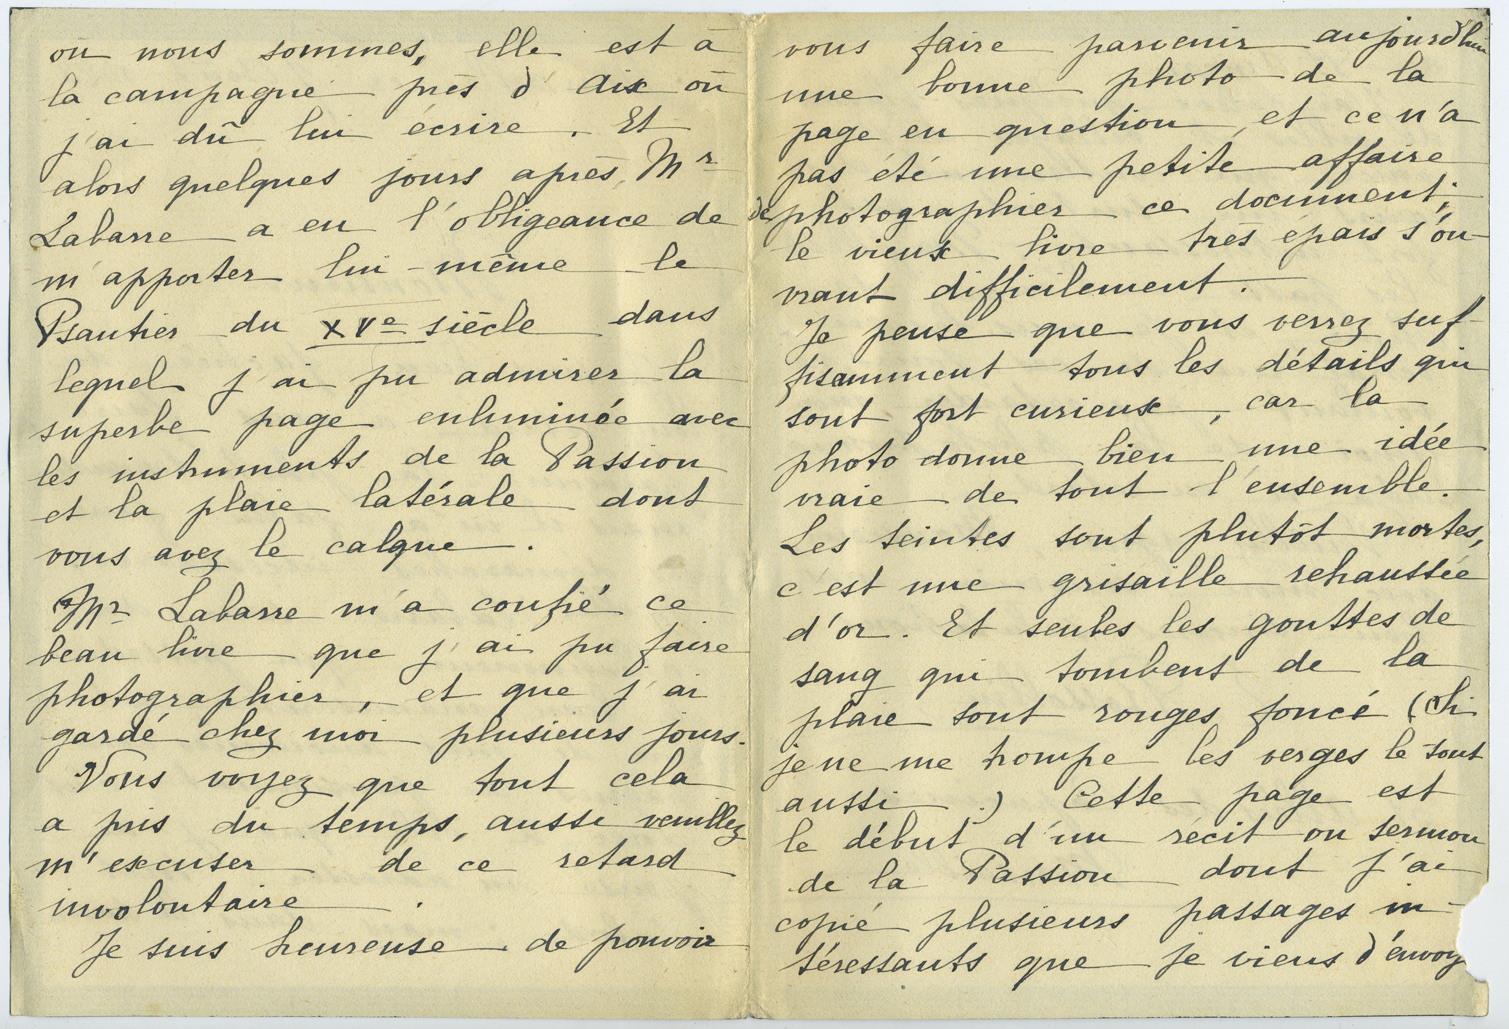 où nous sommes, elle est à
la campagne près d'Aix où
j'ai dû lui écrire. Et
alors quelques jours après, Mr
Labarre a eu l'obligeance de
m'apporter lui-même le
Psautier du XVe siècle dans
lequel j'ai pu admirer la
superbe page enluminée avec
les instruments de la Passion
et la plaie latérale dont
vous avez le calque.
Mr Labarre m'a confié ce
beau livre que j'ai pu faire
photographier, et que j'ai
gardé chez moi plusieurs jours.
Vous voyez que tout cela
a pris du temps, aussi veuillez
m'excuser de ce retard
involontaire.
Je suis heureuse de pouvoir
vous faire parvenir aujourd'hui
une bonne photo de la
page en question, et ce n'a
pas été une petite affaire
de photographier ce document;
le vieux livre très épais s'ou-
vrant difficilement.
Je pense que vous verrez suf-
fisamment tous les détails qui
sont fort curieux, car la
photo donne bien une idée
vraie de tout l'ensemble.
Les teintes sont plutôt mortes,
c'est une grisaille rehaussée
d'or. Et seules les gouttes de
sang qui tombent de la
plaie sont rouges foncé (si
je ne me trompe les verges le sont
aussi.) Cette page est
le début d'un récit ou sermon
de la Passion dont j'ai
copié plusieurs passages in-
téressants que je viens d'envoy